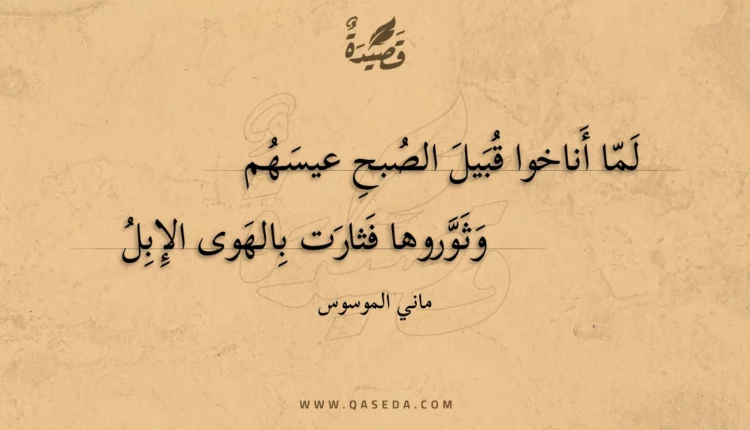 قَصِيْدَةٌ
لَمّا أَناخوا قُبَيلَ الصُبحِ عيسَهُم
وَثَوَّروها فَثارَت بِالهَوى الإِبِلُ
ماني الموسوس
WWW.QASEDA.COM